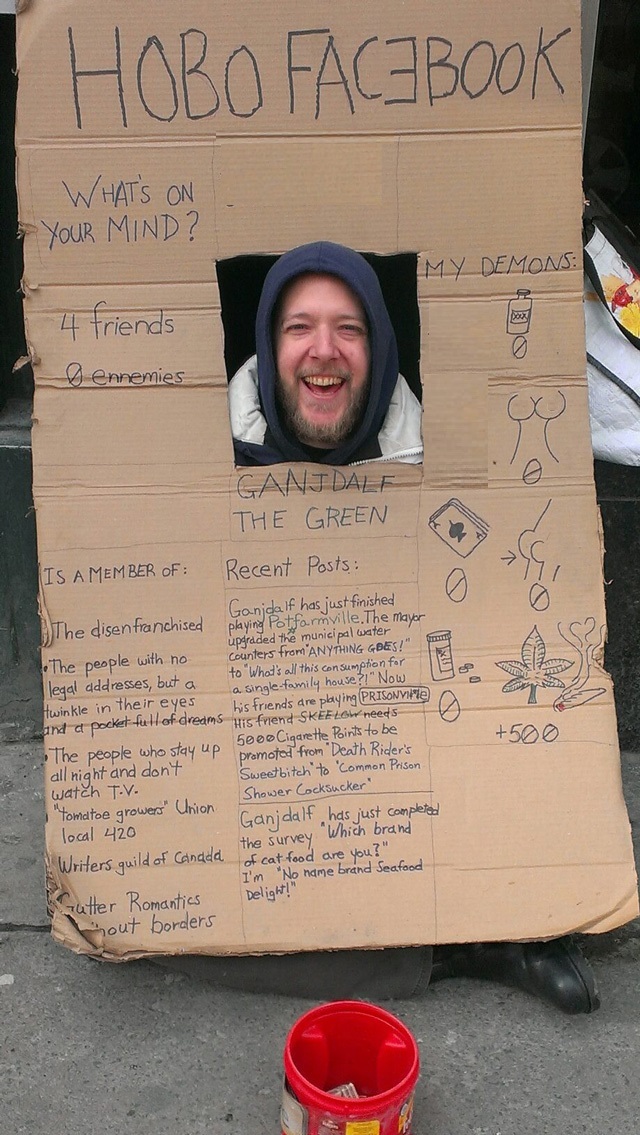 HOBO FACEBOOK
WHAT'S ON
YOUR MIND?
4 friends
0 ennemies
MY DEMONS:
XXX
0
0
0
0
0
+500
GANJDALF
THE GREEN
IS A MEMBER OF:
The disenfranchised
•The people with no
legal addresses, but a
twinkle in their eyes
and a pocket full of dreams
•The people who stay up
all night and don't
watch T.V.
•"tomatoe growers" Union
local 420
Writers guild of Canada
Gutter Romantics
hout borders
Recent Posts:
Ganjdalf has just finished
playing Potfarmville. The mayor
upgraded the municipal water
counters from "ANYTHING GOES!"
to "What's all this consumption for
a single-family house?!" Now
his friends are playing PRISONVILLE
His friend SKEELOW needs
5000 Cigarette Points to be
promoted from "Death Rider's
Sweetbitch" to "Common Prison
Shower Cocksucker"
Ganjdalf has just completed
the survey "Which brand
of cat food are you?"
I'm "No name brand Seafood
Delight!"